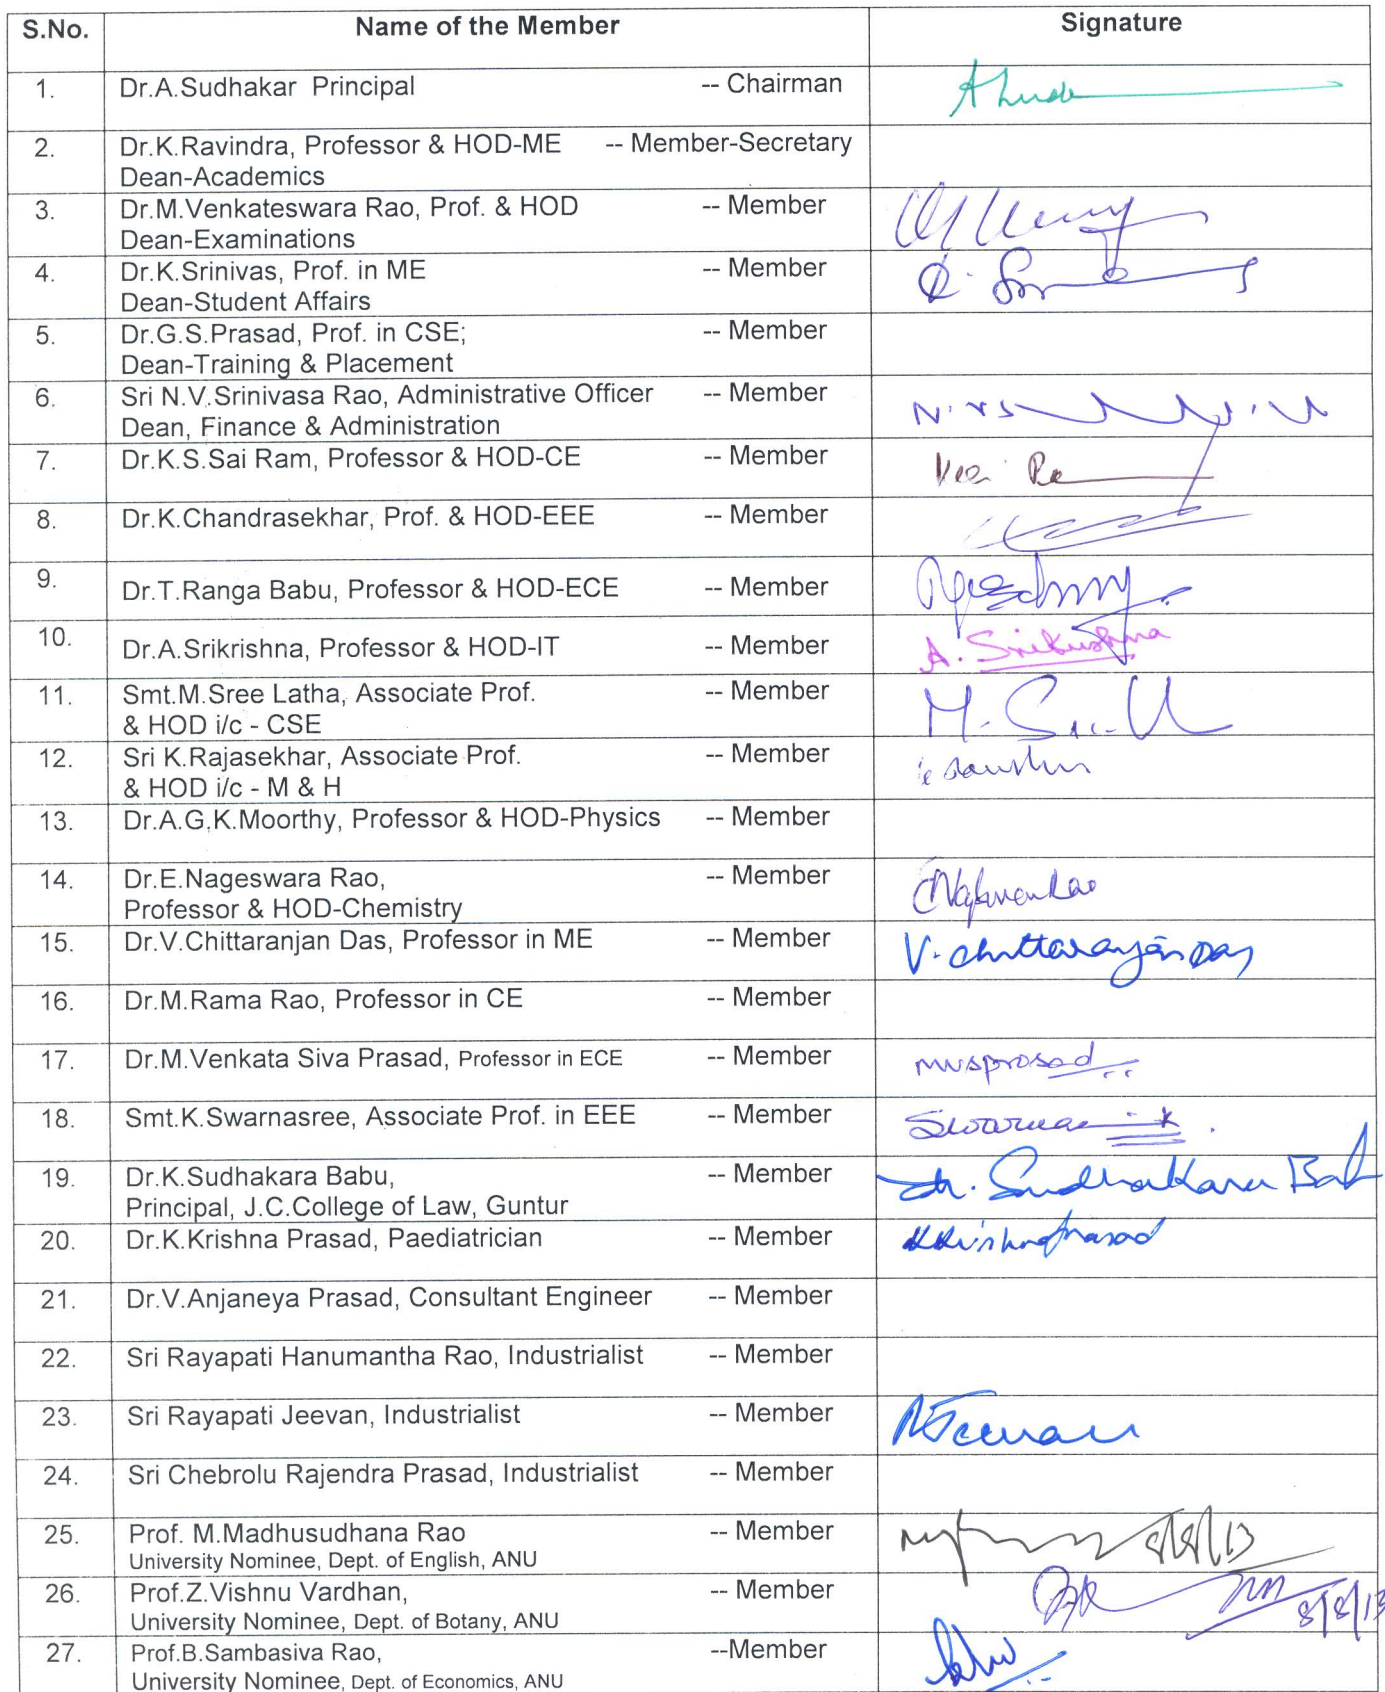 S.No. Name of the Member Signature
1. Dr.A.Sudhakar Principal -- Chairman
2. Dr.K.Ravindra, Professor & HOD-ME -- Member-Secretary
Dean-Academics
3. Dr.M.Venkateswara Rao, Prof. & HOD -- Member
Dean-Examinations
4. Dr.K.Srinivas, Prof. in ME -- Member
Dean-Student Affairs
5. Dr.G.S.Prasad, Prof. in CSE; -- Member
Dean-Training & Placement
6. Sri N.V.Srinivasa Rao, Administrative Officer -- Member
Dean, Finance & Administration
7. Dr.K.S.Sai Ram, Professor & HOD-CE -- Member
8. Dr.K.Chandrasekhar, Prof. & HOD-EEE -- Member
9. Dr.T.Ranga Babu, Professor & HOD-ECE -- Member
10. Dr.A.Srikrishna, Professor & HOD-IT -- Member A. Srikrishna
11. Smt.M.Sree Latha, Associate Prof. -- Member
& HOD i/c - CSE
12. Sri K.Rajasekhar, Associate Prof. -- Member
& HOD i/c - M & H
13. Dr.A.G.K.Moorthy, Professor & HOD-Physics -- Member
14. Dr.E.Nageswara Rao, -- Member
Professor & HOD-Chemistry
15. Dr.V.Chittaranjan Das, Professor in ME -- Member V. Chittaranjan Das
16. Dr.M.Rama Rao, Professor in CE -- Member
17. Dr.M.Venkata Siva Prasad, Professor in ECE -- Member mvsprasad
18. Smt.K.Swarnasree, Associate Prof. in EEE -- Member
19. Dr.K.Sudhakara Babu, -- Member Sudhakara Bab
Principal, J.C.College of Law, Guntur
20. Dr.K.Krishna Prasad, Paediatrician -- Member KKrishnaprasad
21. Dr.V.Anjaneya Prasad, Consultant Engineer -- Member
22. Sri Rayapati Hanumantha Rao, Industrialist -- Member
23. Sri Rayapati Jeevan, Industrialist -- Member RJeevan
24. Sri Chebrolu Rajendra Prasad, Industrialist -- Member
25. Prof. M.Madhusudhana Rao -- Member 8/8/13
University Nominee, Dept. of English, ANU
26. Prof.Z.Vishnu Vardhan, -- Member 8/8/13
University Nominee, Dept. of Botany, ANU
27. Prof.B.Sambasiva Rao, --Member
University Nominee, Dept. of Economics, ANU